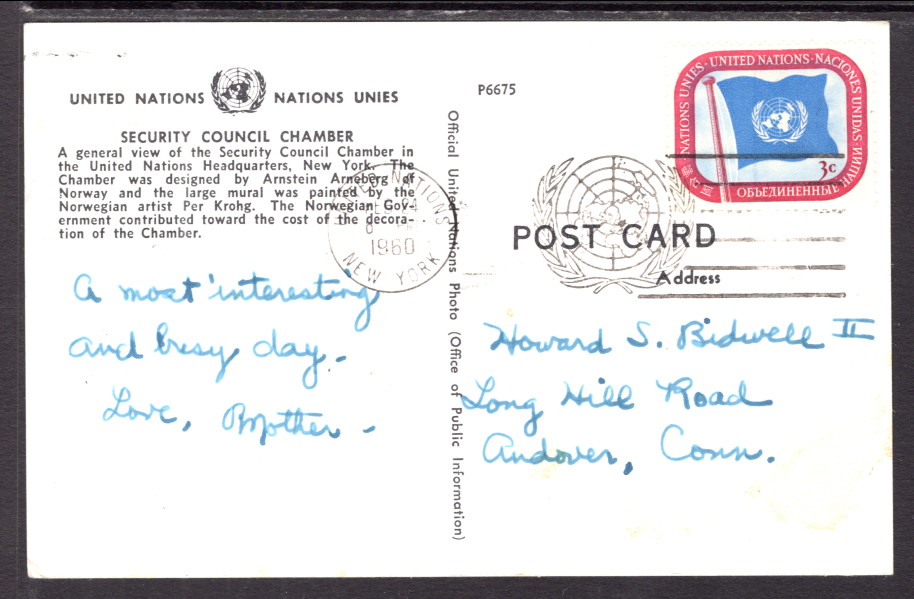 UNITED NATIONS NATIONS UNIES
SECURITY COUNCIL CHAMBER
A general view of the Security Council Chamber in
the United Nations Headquarters, New York. The
Chamber was designed by Arnstein Arneberg of
Norway and the large mural was painted by the
Norwegian artist Per Krohg. The Norwegian Gov-
ernment contributed toward the cost of the decora-
tion of the Chamber.
A most interesting
and busy day.
Love, Mother -
Official United Nations Photo (Office of Public Information)
P6675
UNITED NATIONS
1960
NEW YORK
NATIONS UNIES · UNITED NATIONS · NACIONES UNIDAS
ОБЪЕДИНЕННЫЕ НАЦИИ
3c
POST CARD
Address
Howard S. Bidwell II
Long Hill Road
Andover, Conn.